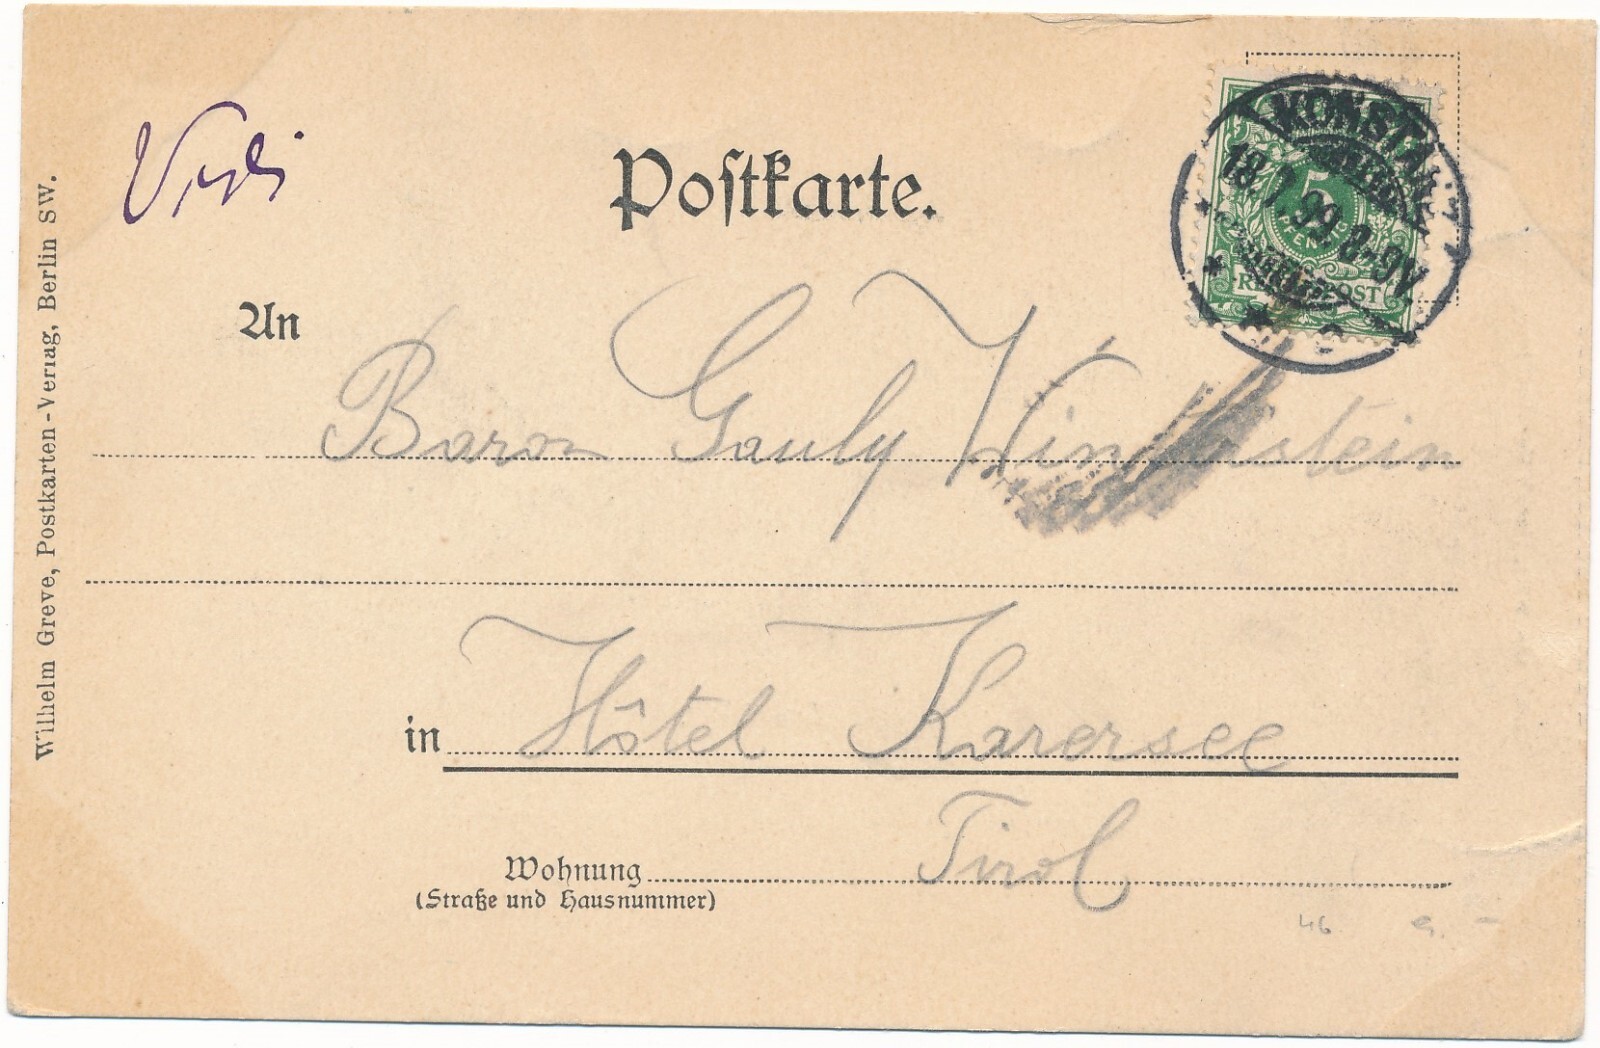 Postkarte.
KONSTANZ
18.7.99 8-9N
5
PFENNIG
REICHSPOST
An
Baron Gauly
in Hôtel Karersee
Tirol
Wohnung
(Straße und Hausnummer)
46
Wilhelm Greve, Postkarten-Verlag, Berlin SW.